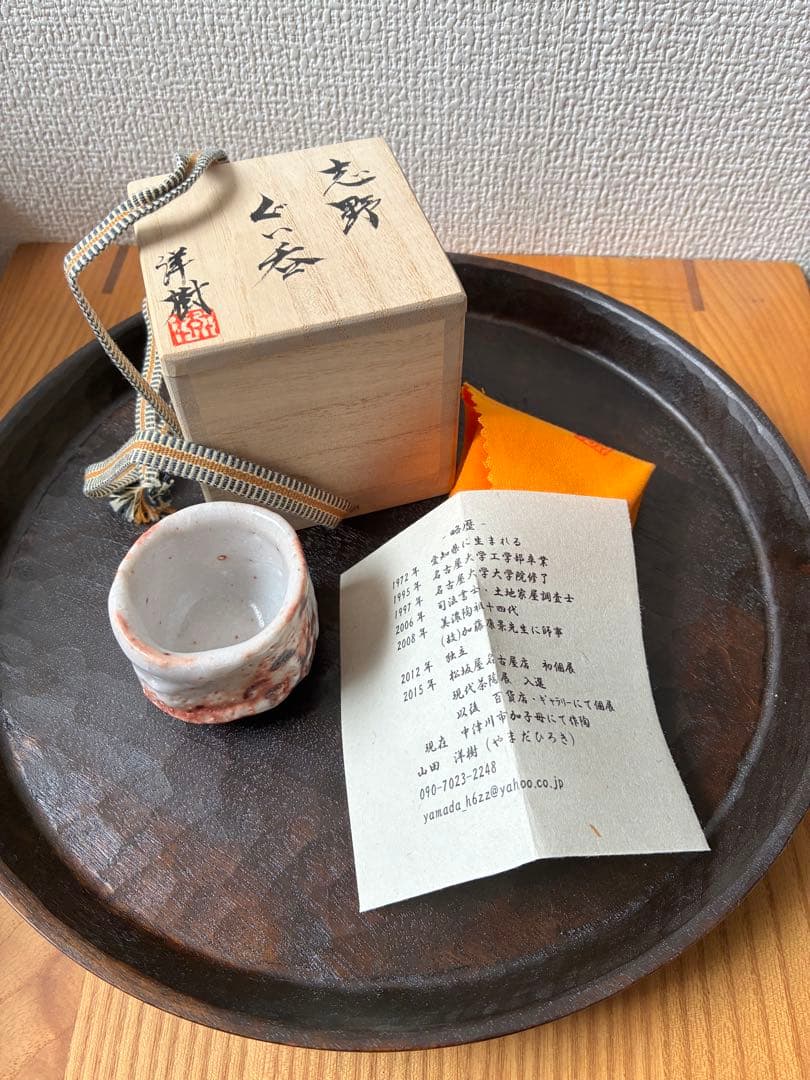 志野
ぐい呑
洋樹
- 略歴 -
1972年 愛知県に生まれる
1995年 名古屋大学工学部卒業
1997年 名古屋大学大学院修了
2006年 司法書士・土地家屋調査士
2008年 美濃陶祖十四代
(故)加藤康景先生に師事
独立
2012年 松坂屋名古屋店 初個展
2015年 現代茶陶展 入選
以後 百貨店・ギャラリーにて個展
現在 中津川市加子母にて作陶
山田 洋樹 (やまだひろき)
090-7023-2248
yamada_h6zz@yahoo.co.jp